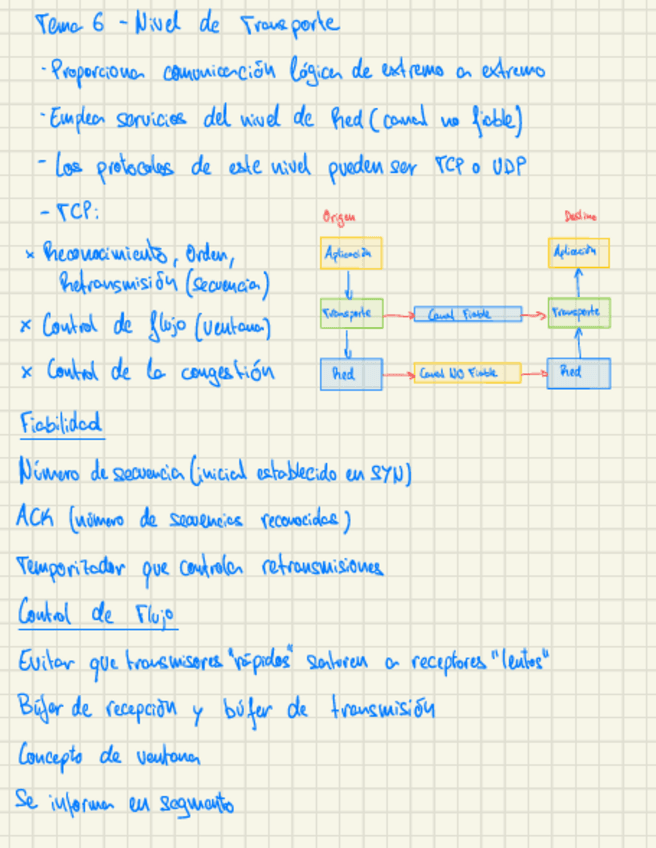 Tema 6 - Nivel de Transporte
- Proporciona comunicación lógica de extremo a extremo
- Emplea servicios del nivel de Red (canal no fiable)
- Los protocolos de este nivel pueden ser TCP o UDP
- TCP:
x Reconocimiento, Orden,
Retransmisión (secuencia)
x Control de flujo (ventana)
x Control de la congestión
Origen
Destino
Aplicación
Aplicación
Transporte
Canal Fiable
Transporte
Red
Canal NO Fiable
Red
Fiabilidad
Número de secuencia (inicial establecido en SYN)
ACK (número de secuencias reconocidas)
Temporizador que controla retransmisiones
Control de Flujo
Evitar que transmisores "rápidos" saturen a receptores "lentos"
Búfer de recepción y búfer de transmisión
Concepto de ventana
Se informa en segmento